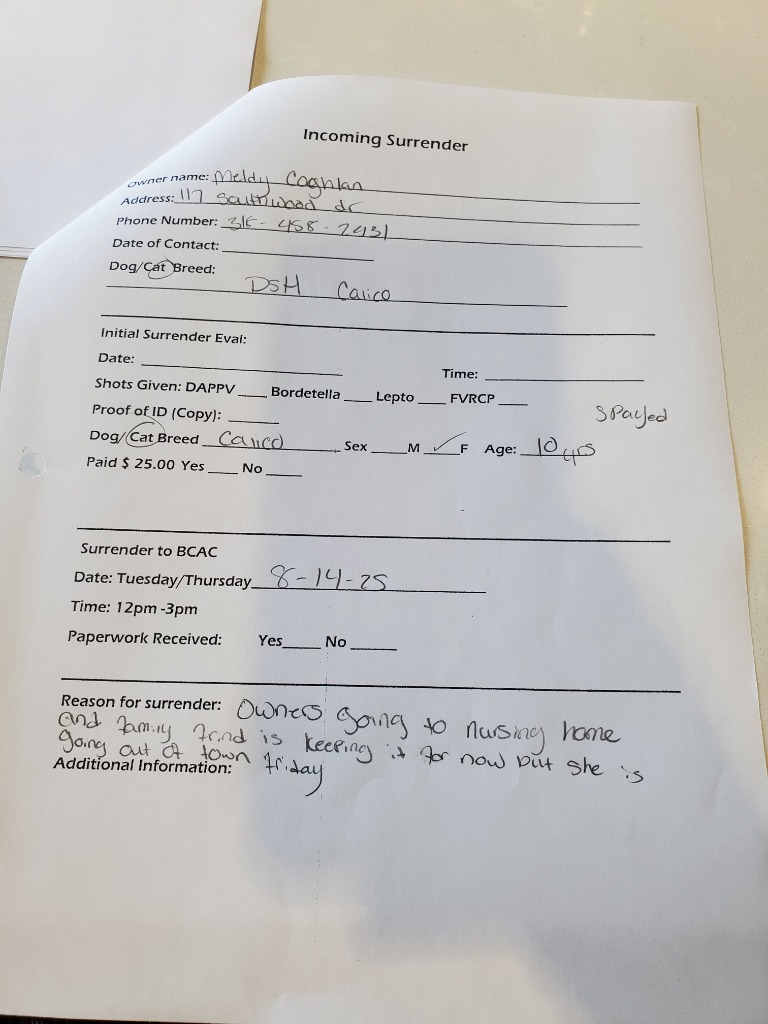 Incoming Surrender
Owner name: Meldy Coghlan
Address: 117 Southwood dr
Phone Number: 318-458-2431
Date of Contact:
Dog/Cat Breed:
DSH Calico
Initial Surrender Eval:
Date: Time:
Shots Given: DAPPV ___ Bordetella ___ Lepto ___ FVRCP ___
Spayed
Proof of ID (Copy):
Dog/Cat Breed Calico Sex ___M ✓F Age: 10 yrs
Paid $ 25.00 Yes ___ No ___
Surrender to BCAC
Date: Tuesday/Thursday 8-14-25
Time: 12pm -3pm
Paperwork Received: Yes___ No ___
Reason for surrender: Owners going to nursing home
and family frind is keeping it for now but she is
going out of town friday
Additional Information: